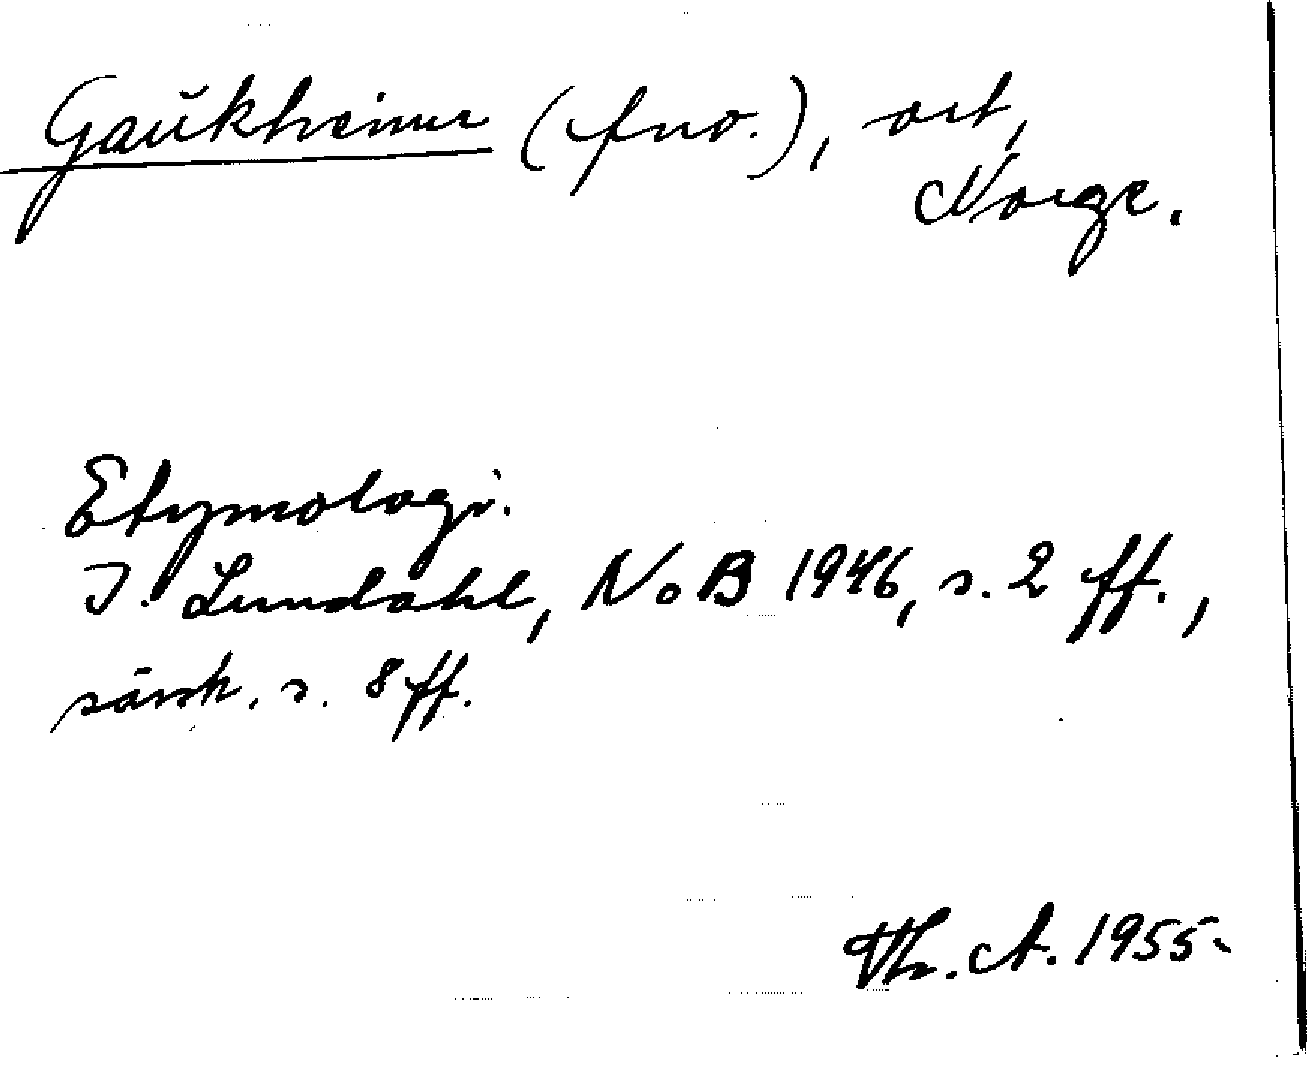 Gaukheimr (fno.), ort,
Norge.
Etymologi.
I. Lundahl, NoB 1946, s. 2 ff.,
särsk. s. 8 ff.
Th. A. 1955